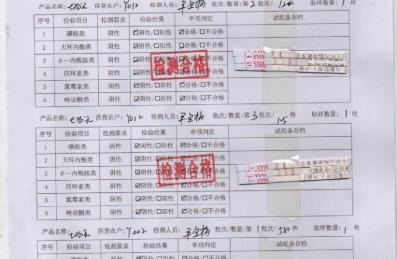 产品名称: 供货农户: Y012 检测人员: 批次/数量:第 批次/ 取样数量: 1 枚
序号 检验项目 检测要求 检验结果 单项判定 试纸条存档
1 磺胺类 阴性 ☑阴性/☐阳性 ☑合格/☐不合格
2 大环内酯类 阴性 ☑阴性/☐阳性 ☑合格/☐不合格
3 β一内酰胺类 阴性 ☑阴性/☐阳性 ☑合格/☐不合格
4 四环素类 阴性 ☑阴性/☐阳性 ☑合格/☐不合格
5 氯霉素类 阴性 ☑阴性/☐阳性 ☑合格/☐不合格
6 喹诺酮类 阴性 ☑阴性/☐阳性 ☑合格/☐不合格
检测合格
产品名称: 供货农户: Y012 检测人员: 批次/数量:第 3 批次/ 取样数量: 1 枚
序号 检验项目 检测要求 检验结果 单项判定 试纸条存档
1 磺胺类 阴性 ☑阴性/☐阳性 ☑合格/☐不合格
2 大环内酯类 阴性 ☑阴性/☐阳性 ☑合格/☐不合格
3 β一内酰胺类 阴性 ☑阴性/☐阳性 ☑合格/☐不合格
4 四环素类 阴性 ☑阴性/☐阳性 ☑合格/☐不合格
5 氯霉素类 阴性 ☑阴性/☐阳性 ☑合格/☐不合格
6 喹诺酮类 阴性 ☑阴性/☐阳性 ☑合格/☐不合格
检测合格
产品名称: 供货农户: Y002 检测人员: 批次/数量:第 1 批次/ 580 取样数量: 1 枚
序号 检验项目 检测要求 检验结果 单项判定 试纸条存档